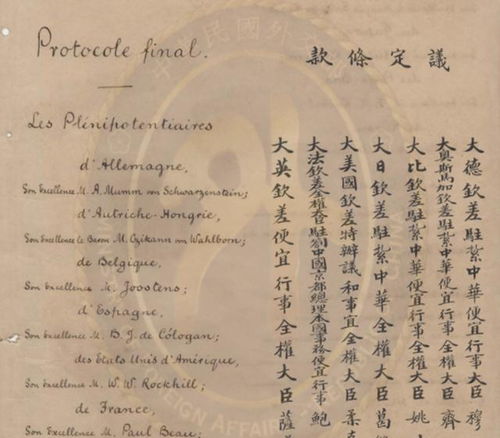 Protocole final.
Les Plénipotentiaires
d'Allemagne,
Son Excellence M. A. Mumm von Schwarzenstein;
d'Autriche-Hongrie,
Son Excellence le Baron M. Czikann von Wahlborn;
de Belgique,
Son Excellence M. Joostens;
d'Espagne,
Son Excellence M. B. J. de Cólogan;
des Etats Unis d'Amérique,
Son Excellence M. W. W. Rockhill;
de France,
Son Excellence M. Paul Beau;
款條定議
大德欽差駐紮中華便宜行事大臣穆
大奧斯馬加欽差駐紮中華便宜行事全權大臣齊
大比欽差駐紮中華便宜行事全權大臣姚
大日欽差駐紮中華全權大臣葛
大美國欽差特辦議和事宜全權大臣柔
大法欽差全權大臣駐劄中國京都總理本國事務便宜行事鮑
大英欽差便宜行事全權大臣薩
民國外
IGN AFFAI